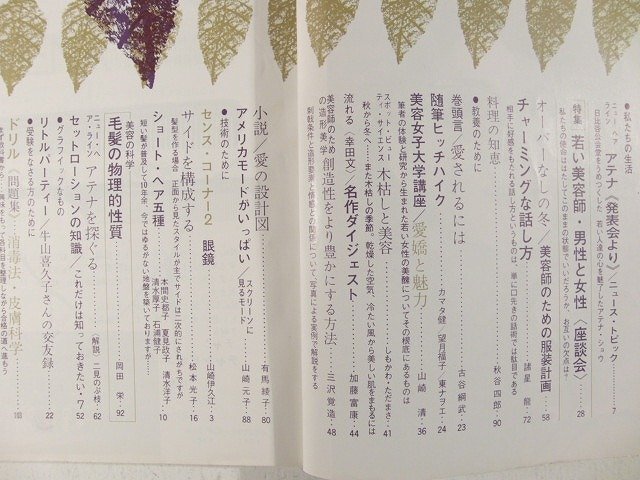 ●私たちの生活
ニュー・ヘア・ライン
アテナ《発表会より》／ニュース・トピック……7
特集 若い美容師・男性と女性〈座談会〉……28
オーバーなしの冬／美容師のための服装計画……58
チャーミングな話し方……諸星 龍……72
相手に好感をもたれる話し方というものは、単に口先きの話術では駄目である
料理の知恵……秋谷四郎……90
●教養のために
巻頭言／愛されるには……古谷綱武……23
随筆ヒッチハイク……カマタ健，望月福子，東ナヲエ……24
美容女子大学講座／愛嬌と魅力……山崎 清……36
筆者の体験と研究から生まれた若い女性の美醜についてその根底にあるものは
スポット・ビュー
ティ・サイエンス
木枯しと美容……しもかわ・ただまさ……41
秋から冬へ…また木枯しの季節。乾燥した空気、冷たい風から美しい肌をまもるには
流れる〈幸田文〉／名作ダイジェスト……加藤富康……44
美容師のため
の造形美学
創造性をより豊かにする方法……三沢覚造……48
刺戟条件と造形要素と情感との関係について、写真による実例で解説をする
小説／愛の設計図……有馬綾子……80
アメリカモードがいっぱい／スクリーンに
見るモード……山崎元子……88
●技術のために
センス・コーナー2 眼鏡……山崎伊久江……3
サイドを構成する……松本光子……16
髪型を作る場合 正面から見たスタイルが主でサイドは二次的にされがちですが
ショート・ヘア五種……本間史都子・夏見政子・清水洋子
清水厚子・石浦健子……10
短い髪が普及して10年余、今ではゆるがない地盤を築いておりますが……
美容の科学
毛髪の物理的性質……岡田 栄……92
ニュー・ヘア・ライン
アテナを探ぐる……解説／二見の必枝……62
セットローションの知識／これだけは知っておきたい・7……52
●グラフィックなもの
リトルパーティー／牛山喜久子さんの交友録……22
●受験をなさる方のために
ドリル〈問題集〉消毒法・皮膚科学……103